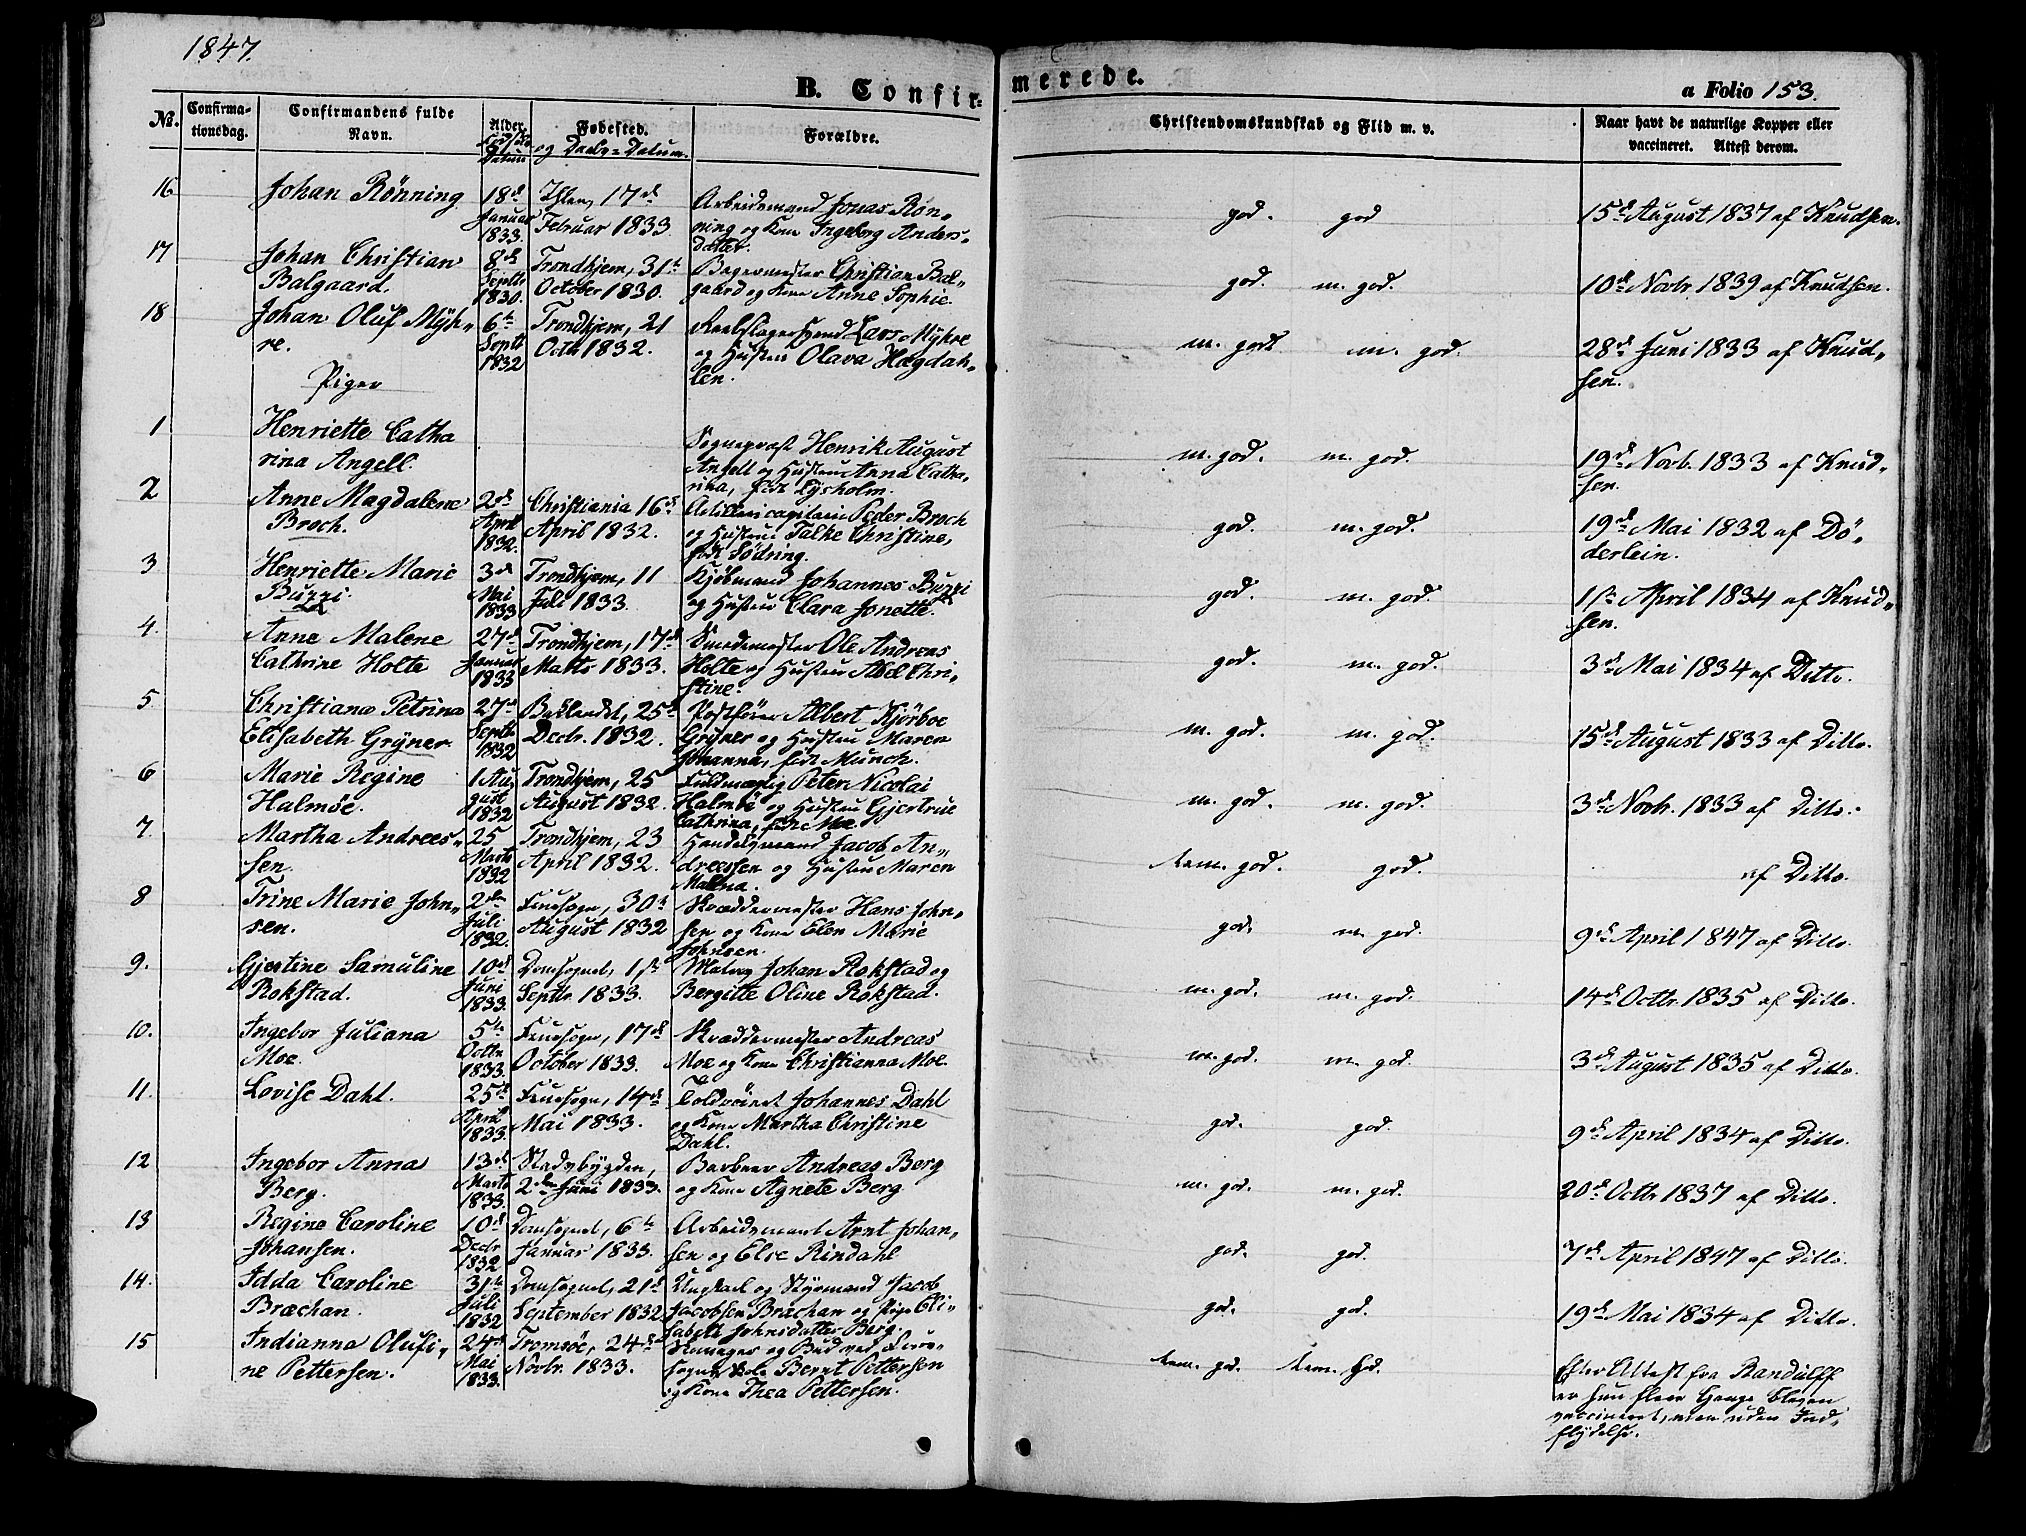 1847.
B. Confir-
merede.
a Folio 153.
No. Confirma-
tionsdag.
Confirmandens fulde
Navn.
Alder
Fødsels
Datum
Fødested.
og Daabs-Datum.
Forældre.
Christendomskundskab og Flid m. v.
Naar havt de naturlige Kopper eller
vaccineret. Attest derom.
16 Johan Rönning 18d Januar 1833. Ihlen, 17d Februar 1833 Arbeidsmand Jonas Rön-
ning og Kone Ingeborg Anders-
datter. god. god 15d August 1837 af Knudsen.
17 Johan Christian
Balgaard. 8de Septbr 1830. Trondhjem, 31te
October 1830. Bagermester Christian Bal-
gaard og Kone Anne Sophie. god. m. god. 10d Novbr. 1839 af Knudsen.
18 Johan Oluf Mÿh-
re. 6te Septbr 1832 Trondhjem, 21
Octb 1832. Lars Mÿhre
og Hustru Olava Hægdah-
len. m. godt m. god. 28d Juni 1833 af Knud-
sen.
Piger
1 Henriette Catha
rina Angell. Sognepræst Henrik August
Angell og Hustru Anna Catha-
rina, født Lysholm. m. god. m. god. 19d Novb. 1833 af Knud-
sen.
2 Anne Magdalene
Broch. 2d April 1832. Christiania 16d
April 1832. Artillericapitain Peder Broch
og Hustru Talke Christine,
født Södring. god. m. god. 19d Mai 1832 af Dö-
derlein.
3 Henriette Marie
Buzzi. 3d Mai 1833 Trondhjem, 11
Juli 1833. Kjøbmand Johannes Buzzi
og Hustru Clara Jonette. god. m. god. 1ste April 1834 af Knud-
sen.
4. Anne Malene
Cathrine Holte 27d Januar 1833 Trondhjem, 17d
Marts 1833. Smedemester Ole Andreas
Holte og Hustru Abel Chri-
stine. god. m. god. 3d Mai 1834 af Ditto.
5 Christiana Petrina
Elisabeth Grÿner. 27d Septb 1832 Baklandet, 25d
Decbr. 1832. Postfører Albert Kjörboe
Grÿner og Hustru Maren
Johanna, født Munch. m. god. m. god 15d August 1833 af Ditto.
6 Marie Regine
Halmøe. 1 Au-
gust 1832 Trondhjem, 25
August 1832. Fuldmægtig Peter Nicolai
Halmöe og Hustru Gjertrue
Cathrina, født Moe. m. god. m. god. 3d Novbr. 1833 af Ditto.
7. Martha Andrees-
sen. 25 Marts 1832 Trondhjem, 23
April 1832. Handelsmand Jacob An-
dreessen og Hustru Maren
Malena. tem. god. god. af Ditto.
8 Trine Marie John-
sen. 2den Juli 1832. Fruesogn, 30d
August 1832 Skræddermester Hans John-
sen og Kone Elen Marie
Johnsen. god. m. god. 9d April 1847 af Ditto.
9. Gjertine Samuline
Rokstad. 10d Juni 1833. Domsognet, 1ste
Septbr. 1833. Maler Johan Rokstad og
Bergitte Oline Rokstad. m. god. m. god. 14d Octbr. 1835 af Ditto.
10. Ingebor Juliana
Moe. 5te Octbr 1833. Fruesogn, 17d
October 1833. Skræddermester Andreas
Moe og Kone Christianna Moe. m. god. m. god. 3d August 1835 af Ditto.
11. Lovise Dahl. 25d April 1833. Fruesogn, 14d
Mai 1833. Toldrörer Johannes Dahl
og Kone Martha Christine
Dahl. god. god. 9d April 1834 af Ditto.
12 Ingebor Anna
Berg. 13d Marts 1833. Stadsbygden,
2den Juni 1833. Barbeer Andreas Berg
og Kone Agnete Berg m. god. m. god. 20d Octbr 1837 af Ditto.
13 Regine Caroline
Johansen. 10d Decbr 1832 Domsognet, 6te
Januar 1833. Arbeidsmand Arnt Johan-
sen og Else Rindahl god. god. 7d April 1847 af Ditto.
14. Idda Caroline
Bræchan. 31te Juli 1832 Domsognet, 21d
September 1832 Ungkarl og Styrmand Jacob
Jacobsen Bræchan og Pige Eli-
sabeth Johnsdatter Berg. god. god. 19d Mai 1834 af Ditto.
15 Indianna Olufi-
ne Pettersen. 24d Mai 1833. Tromsöe, 24d
Novbr. 1833. og Bud ved Frue-
Bernt Pettersen
og Kone Thea Pettersen. tem. god. tem. god. Efter Attest fra Randulff
er hun flere Gange bleven
vaccineret, men uden Ind-
flydelse.